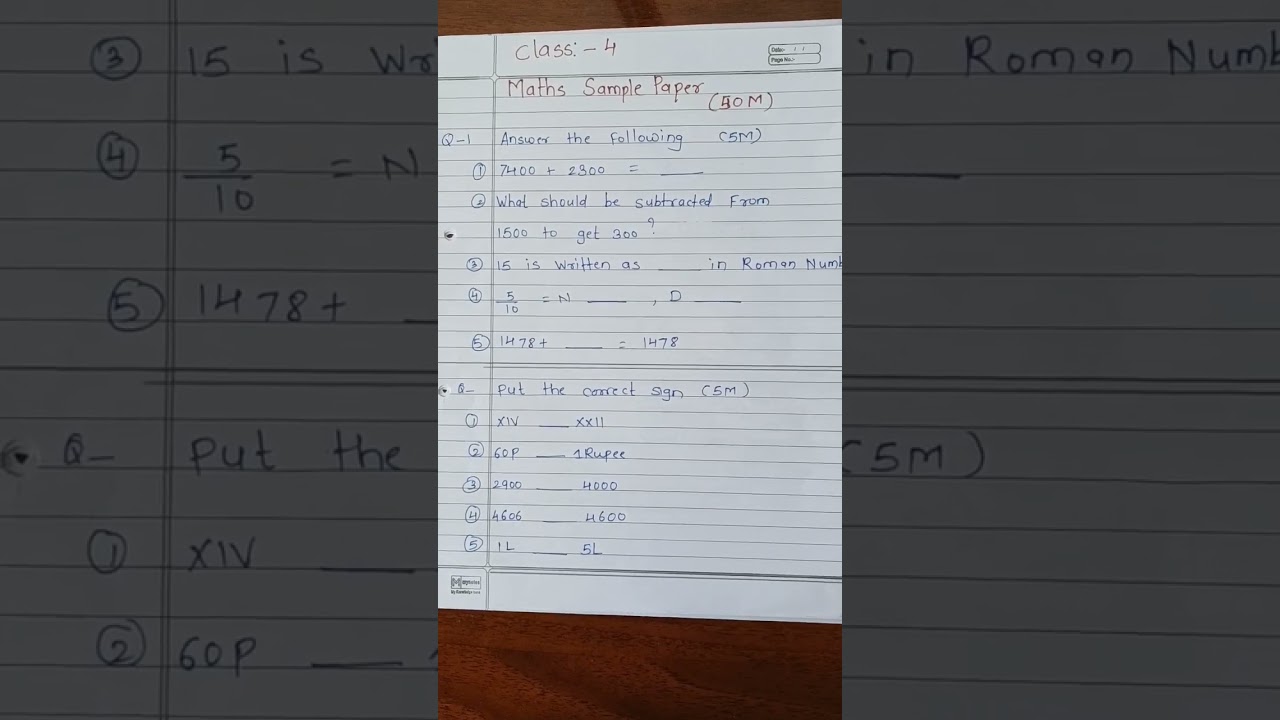 Class:- 4
Date:- / /
Page No.:-
Maths Sample Paper
(50M)
Q-1 Answer the following (5M)
① 7400 + 2300 = ____
② What should be subtracted From
1500 to get 300?
③ 15 is written as ____ in Roman Numb
④ 5/10 = N ____ , D ____
⑤ 1478+ ____ = 1478
Q- Put the correct sign (5M)
① XIV ____ XXII
② 60P ____ 1Rupee
③ 2900 ____ 4000
④ 4606 ____ 4600
⑤ 1L ____ 5L
③ 15 is Wri
in Roman Numb
④ 5/10 = N
⑤ 1478+
Q- Put the
(5M)
① XIV ____
② 60P ____